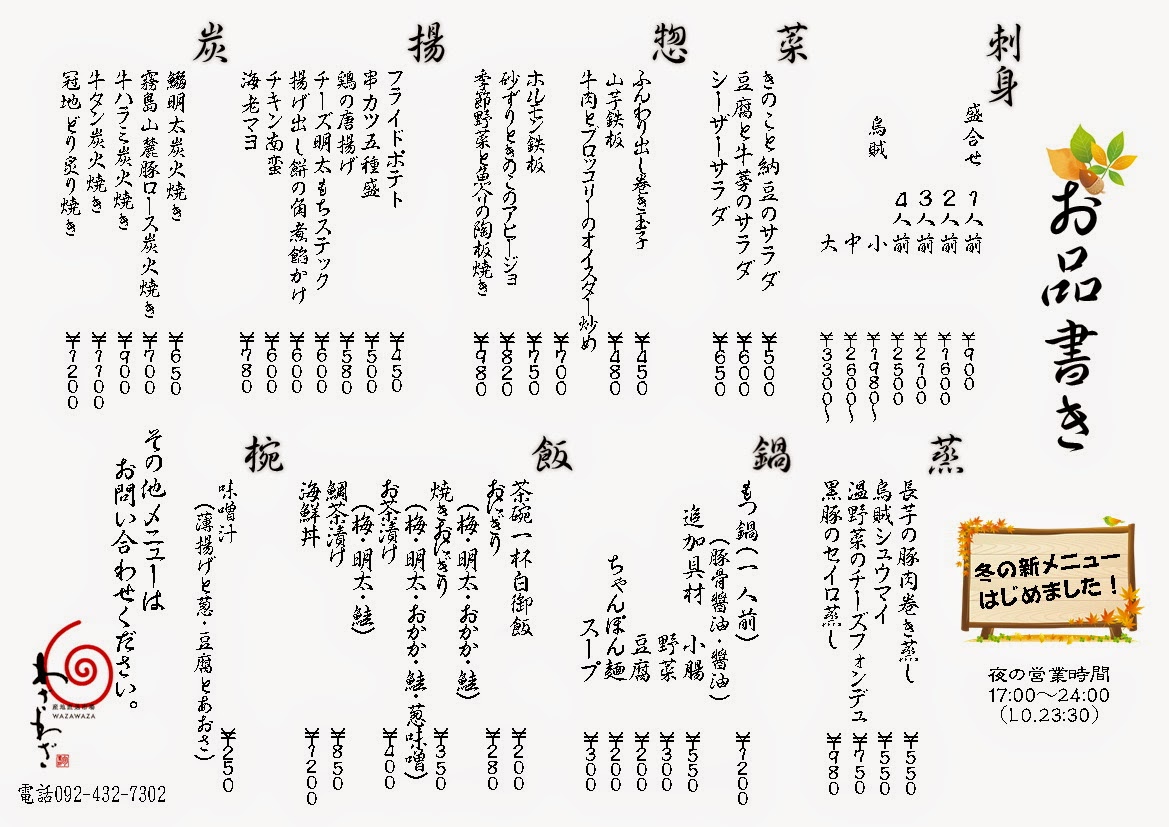 お品書き
刺身
盛合せ 1人前 ¥900
2人前 ¥1600
3人前 ¥2100
4人前 ¥2500
烏賊 小 ¥1980〜
中 ¥2600〜
大 ¥3300〜
菜
きのこと納豆のサラダ ¥500
豆腐と牛蒡のサラダ ¥600
シーザーサラダ ¥650
惣
ふんわり出し巻き玉子 ¥450
山芋鉄板 ¥480
牛肉とブロッコリーのオイスター炒め ¥700
ホルモン鉄板 ¥750
砂ずりときのこのアヒージョ ¥820
季節野菜と魚介の陶板焼き ¥980
揚
フライドポテト ¥450
串カツ五種盛 ¥500
鶏の唐揚げ ¥580
チーズ明太もちステック ¥600
揚げ出し餅の角煮餡かけ ¥600
チキン南蛮 ¥600
海老マヨ ¥780
炭
鰯明太炭火焼き ¥650
霧島山麓豚ロース炭火焼き ¥700
牛ハラミ炭火焼き ¥900
牛タン炭火焼き ¥1100
冠地どり炙り焼き ¥1200
蒸
長芋の豚肉巻き蒸し ¥550
烏賊シュウマイ ¥550
温野菜のチーズフォンデュ ¥750
黒豚のセイロ蒸し ¥980
鍋
もつ鍋(一人前) ¥1200
(豚骨醬油・醬油)
追加具材 小腸 ¥550
野菜 ¥300
豆腐 ¥200
ちゃんぽん麺 ¥200
スープ ¥300
飯
茶碗一杯白御飯 ¥200
おにぎり ¥280
(梅・明太・おかか・鮭)
焼きおにぎり ¥350
(梅・明太・おかか・鮭・葱味噌)
お茶漬け ¥400
(梅・明太・鮭)
鯛茶漬け ¥850
海鮮丼 ¥1200
椀
味噌汁 ¥250
(薄揚げと葱・豆腐とあおさ)
その他メニューは
お問い合わせください。
冬の新メニュー
はじめました！
夜の営業時間
17:00〜24:00
(L0.23:30)
わざわざ
WAZAWAZA
電話092-432-7302